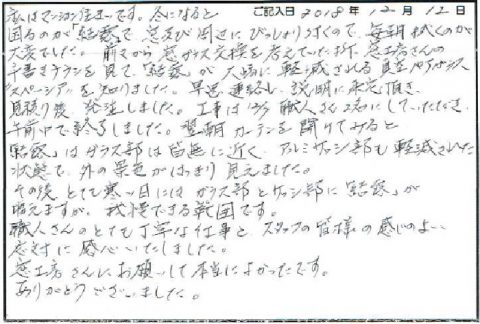 ご記入日 2018年12月12日
私はマンション住まいです。冬になると
困るのが「結露」で窓及び周辺にびっしり付くので、毎朝拭くのが
大変でした。前から窓ガラス交換を考えていた折、窓工房さんの
手書きチラシを見て、「結露」が大幅に軽減される真空ペアガラス
"スペーシア"を知りました。早速連絡し、説明に来宅頂き、
見積り後、発注しました。工事は 職人さん2名にしていただき、
午前中で終了しました。翌朝カーテンを開けてみると
「結露」はガラス部は皆無に近く、アルミサッシ部も軽減された
状態で、外の景色がはっきり見えました。
その後とても寒い日にはガラス部とサッシ部に「結露」が
見えますが、我慢できる範囲です。
職人さんのとても丁寧な仕事と、スタッフの皆様の感じのよい
応対に感心いたしました。
窓工房さんにお願いして本当によかったです。
ありがとうございました。